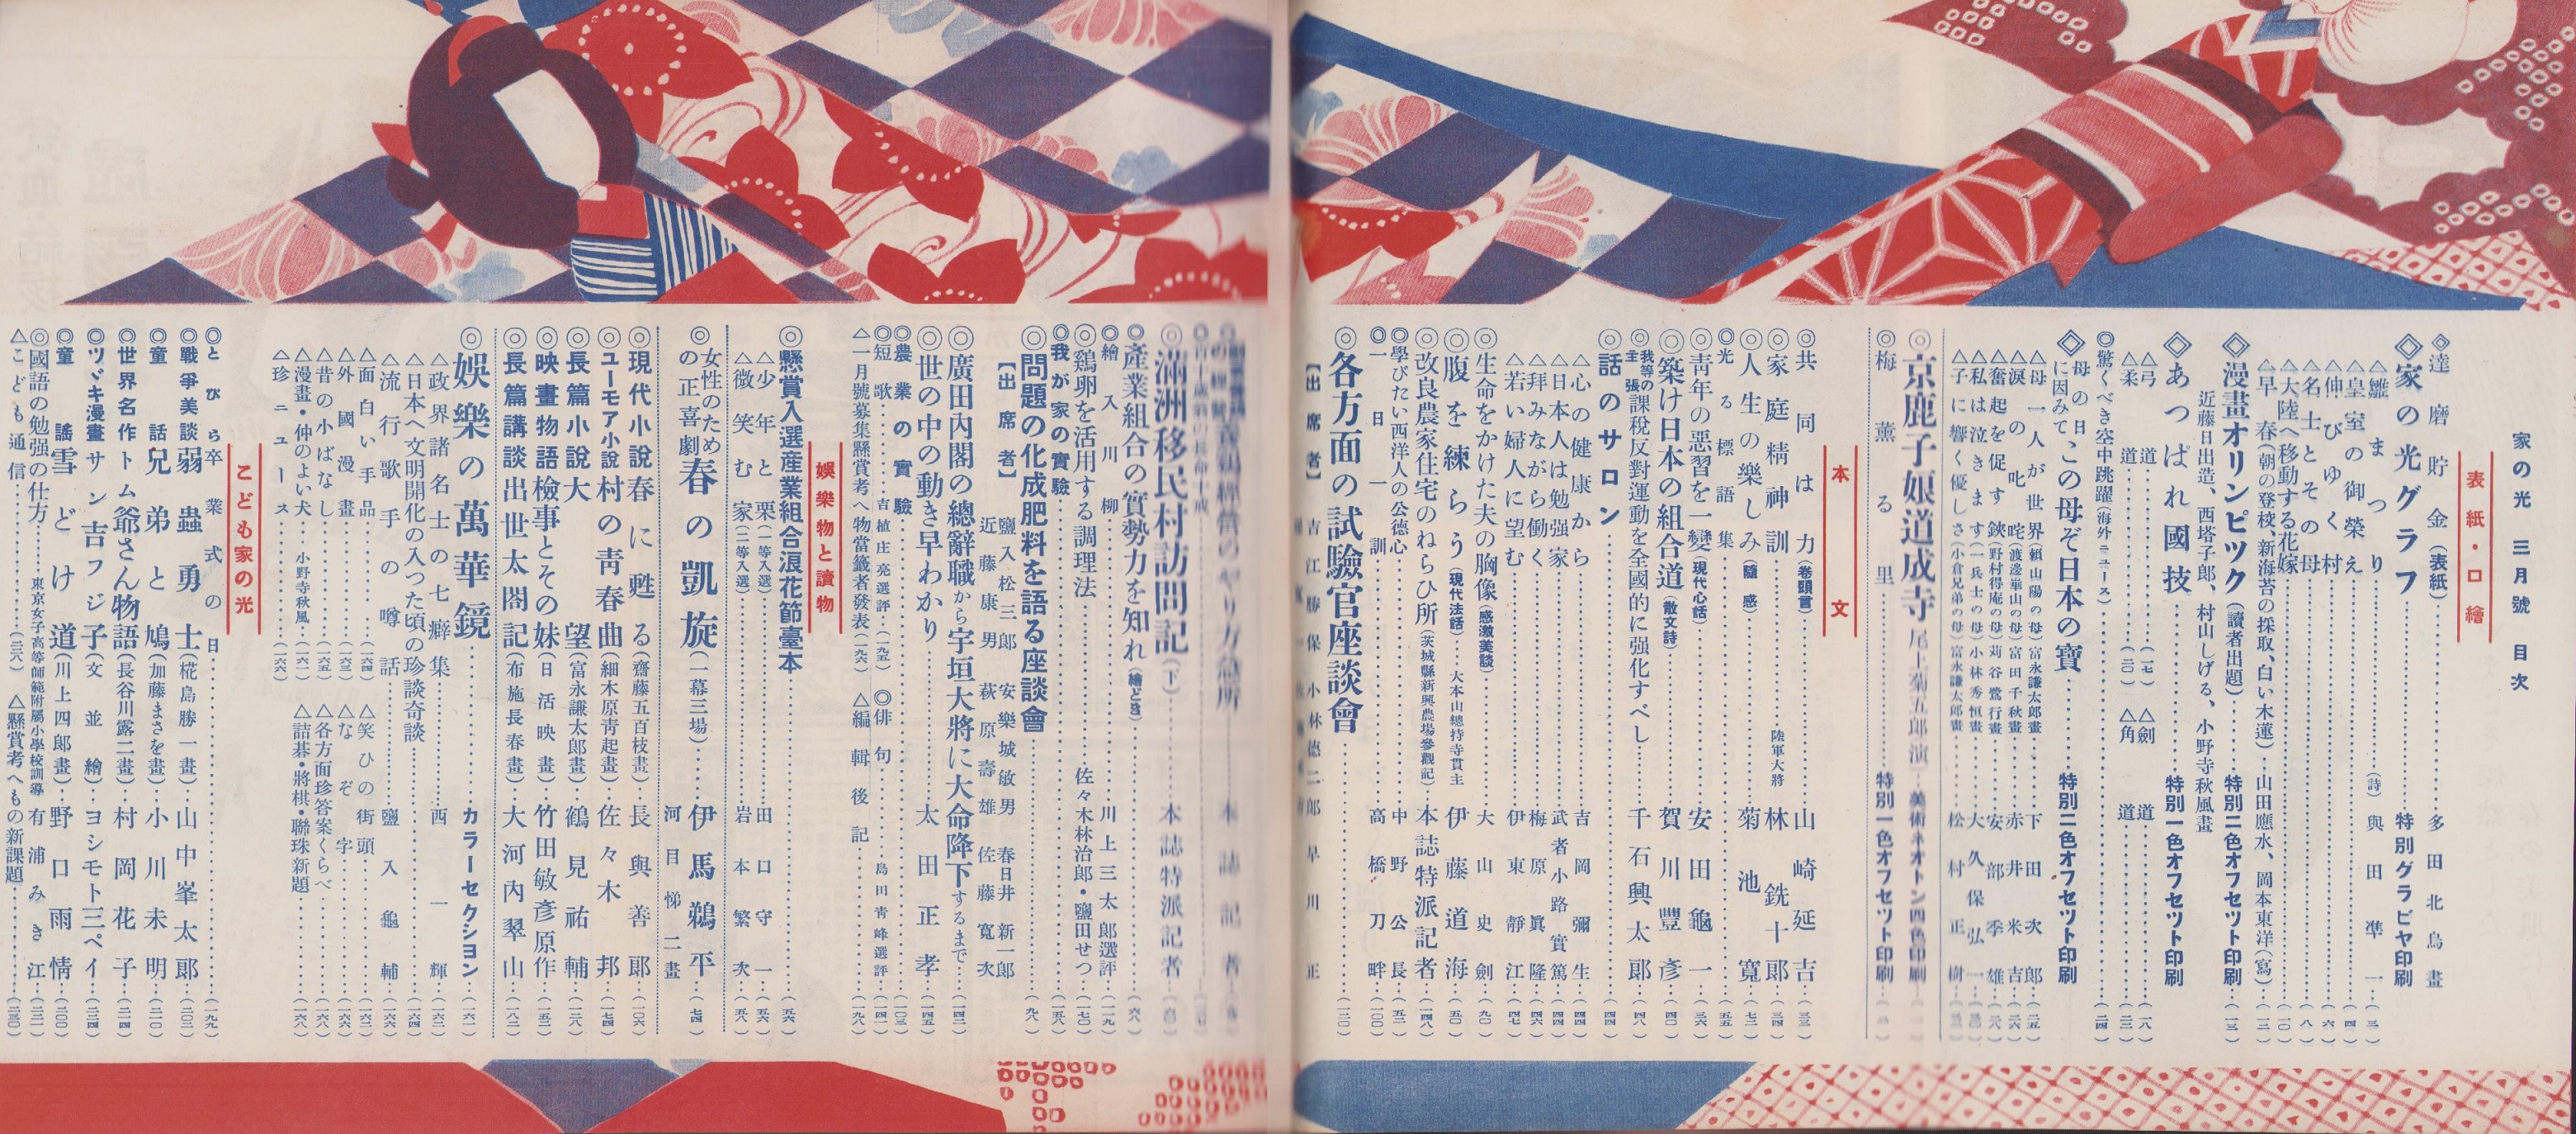 家の光 三月號 目次
表紙・口繪
◇達磨貯金(表紙)…多田北烏畫
◇家の光グラフ…特別グラビヤ印刷
△雛まつり(詩)…與田凖一…(三)
△皇室の御榮え…(四)
△伸びゆく村…(六)
△名士とその母…(八)
△大陸へ移動する花嫁…(一〇)
△早春(朝の登校、新海苔の採取、白い木蓮)…山田應水、岡本東洋(寫)…(一二)
◇漫畫オリンピック(讀者出題)…特別二色オフセット印刷…(一三)
近藤日出造、西塔子郎、村山しげる、小野寺秋風畫
◇あつぱれ國技…特別一色オフセット印刷
△弓道…(一七) △劍道…(一八)
△柔道…(二〇) △角道…(二二)
◎驚くべき空中跳躍(海外ニュース)…(二四)
◇母の日に因みて この母ぞ日本の寶…特別二色オフセット印刷
△母一人が世界(賴山陽の母)富永謙太郎畫…下田次郎…(二五)
△涙の叱咤(渡邊崋山の母)富田千秋畫…赤井米吉…(二六)
△奮起を促す鋏(野村得庵の母)苅谷鷺行畫…安部季雄…(二八)
△私は泣きます(一兵士の母)小林秀恒畫…大久保弘一
△子に響く優しさ(小倉兄弟の母)富永謙太郎畫…松村正樹
◎京鹿子娘道成寺 尾上菊五郎演…美術オネオトン四色印刷
◎梅薫る里…特別一色オフセット印刷
本文
◎共同は力(卷頭言)…山崎延吉…(三三)
◎家庭精神訓…陸軍大將 林銑十郎…(三四)
◎人生の樂しみ(隨感)…菊池寛…(七二)
◎光る標語集…(五五)
◎青年の惡習を一變(現代心話)…安田龜一…(三六)
◎築け日本の組合道(散文詩)…賀川豐彥…(四〇)
◎我等の主張 課稅反對運動を全國的に强化すべし…千石興太郎…(四八)
◎話のサロン…(四四)
△心の健康から…吉岡彌生…(四四)
△日本人は勉强家…武者小路實篤…(四四)
△拜みながら働く…梅原眞隆…(四六)
△若い婦人に望む…伊東靜江…(四七)
◎生命をかけた夫の胸像(感激美談)…大山史劍…(九〇)
◎腹を練らう(現代法話)…大本山總持寺貫主 伊藤道海…(五〇)
◎改良農家住宅のねらひ所(茨城縣新興農場參觀記)…本誌特派記者…(一四八)
◎學びたい西洋人の公德心…中野公長…(五二)
◎一日一訓…高橋刀畔…(一〇〇)
◎各方面の試驗官座談會…(一二〇)
【出席者】 吉江勝保 小林德二郎 早川正
◎滿洲移民村訪問記(下)…本誌特派記者
◎產業組合の實勢力を知れ(繪ときゝ)…(六八)
◎繪入川柳…川上三太郎選評…(一一九)
◎鷄卵を活用する調理法…佐々木林治郎・鹽田せつ…(一七〇)
◎我が家の實驗…(一五八)
◎問題の化成肥料を語る座談會…(九八)
【出席者】 鹽入松三郎 安樂城敏男 春日井新一郎
近藤康男 萩原壽雄 佐藤寬次
◎廣田內閣の總辭職から宇垣大將に大命降下するまで…(一四二)
◎世の中の動き早わかり…太田正孝…(一四五)
◎農業の實驗…(一〇三)
◎短歌…吉植庄亮選評…(一九五) ◎俳句…島田青峰選評…(一四一)
△一月號募集懸賞考へ物當籤者發表(一九六) △編輯後記…(一九八)
娛樂物と讀物
◎懸賞入選產業組合浪花節臺本…(五六)
△少年と栗(一等入選)…田口守一…(五六)
△微笑む家(二等入選)…岩本繁次…(五八)
◎女性のための正喜劇 春の凱旋(一幕三場)…伊馬鵜平…(七四)
河目悌二畫
◎現代小說 春に甦る(齋藤五百枝畫)…長與善郎…(一〇六)
◎ユーモア小說 村の青春曲(細木原青起畫)…佐々木邦…(一七四)
◎長篇小說 大望(富永謙太郎畫)…鶴見祐輔…(一二八)
◎映畫物語 檢事とその妹(日活映畫)…竹田敏彥原作…(一五二)
◎長篇講談 出世太閤記(布施長春畫)…大河內翠山…(一八二)
◎娛樂の萬華鏡…カラーセクション…(一六一)
△政界諸名士の七癖集…西一輝…(一六二)
△日本へ文明開化の入つた頃の珍談奇談…(一六四)
△流行歌手の噂話…鹽入龜輔…(一六六)
△面白い手品…(一六四) △笑ひの街頭…(一六二)
△外國漫畫…(一六三) △なぞ字…(一六六)
△昔の小ばなし…(一六五) △各方面珍答案くらべ…(一六八)
△漫畫・仲のよい犬…小野寺秋風…(一六一) △詰碁・將棋・聯珠新題…(一六八)
△珍ニュース…(一六六)
こども家の光
◎とびら 卒業式の日…(一九九)
◎戰爭美談 弱蟲勇士(椛島勝一畫)…山中峯太郎…(二〇二)
◎童話 兄弟と鳩(加藤まさを畫)…小川未明…(二一〇)
◎世界名作 トム爺さん物語(長谷川露二畫)…村岡花子…(二一四)
◎ツヾキ漫畫 サン吉フジ子(文並繪)…ヨシモト三ペイ…(二二四)
◎童謠 雪どけ道(川上四郎畫)…野口雨情…(二〇〇)
◎國語の勉强の仕方…東京女子高等師範附屬小學校訓導 有浦みき江…(二二一)
△こども通信…(二二八) △懸賞考へもの新課題…(二三〇)